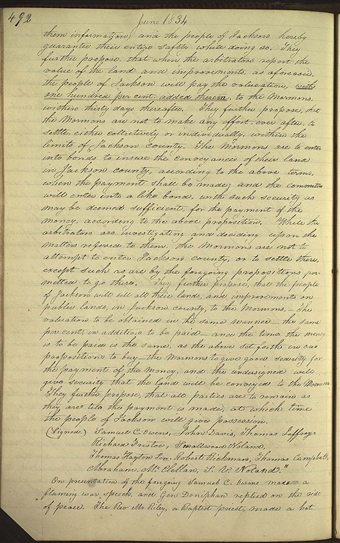 492
June 1834
them information, and the people of Jackson hereby
guarantee their entire safety while doing so. They
further propose, that when the arbitrators report the
value of the land and improvements, as aforesaid,
the people of Jackson will pay the valuation, with
one hundred per cent added thereon, to the Mormons,
within thirty days thereafter. They further propose, that
the Mormons are not to make any effort ever after, to
settle either collectively or individually, within the
limits of Jackson county. The Mormons are to enter
into bonds to insure the conveyance of their land
in Jackson county, according to the above terms,
when the payment shall be made; and the committee
will enter into a like bond, with such security as
may be deemed sufficient, for the payment of the
money, according to the above proposition. While the
arbitrators are investigating and deciding upon the
matters referred to them, the Mormons are not to
attempt to enter Jackson county, or to settle there,
except such as are by the foregoing propositions per
mitted to go there. They further propose, that the people
of Jackson will sell all their lands, and improvements on
public lands, in Jackson county, to the Mormons,— the
valuation to be obtained in the same manner— the same
per cent, in addition to be paid— and the time the money
is to be paid is the same, as the above set forth in our
propositions to buy— the Mormons to give good security for
the payment of the money, and the undersigned will
give security that the land will be conveyed to the Mormons.
They further propose, that all parties are to remain as
they are till the payment is made, at which time
the people of Jackson will give possession.
(Signed) Samuel C. Owens, John Davis, Thomas Jeffreys
Richard Fristoe, Smallwood Noland,
Thomas Hayton Sen. Robert Rickman, Thomas Campbell,
Abraham McClellan, S. V. Noland."
On presentation of the foregoing Samuel C. Owens made a
flaming war speech, and Gen Doniphan replied on the side
of peace. The Rev. Mr Riley, a Baptist priest, made a hot